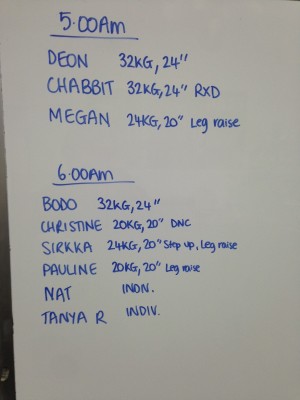 5.00am
DEON 32KG, 24"
CHABBIT 32KG, 24" RXD
MEGAN 24KG, 20" Leg raise
6.00am
BODO 32KG, 24"
CHRISTINE 20KG, 20" DNC
SIRKKA 24KG, 20" Step up, Leg raise
PAULINE 20KG, 20" Leg raise
NAT INDN.
TANYA R INDIV.